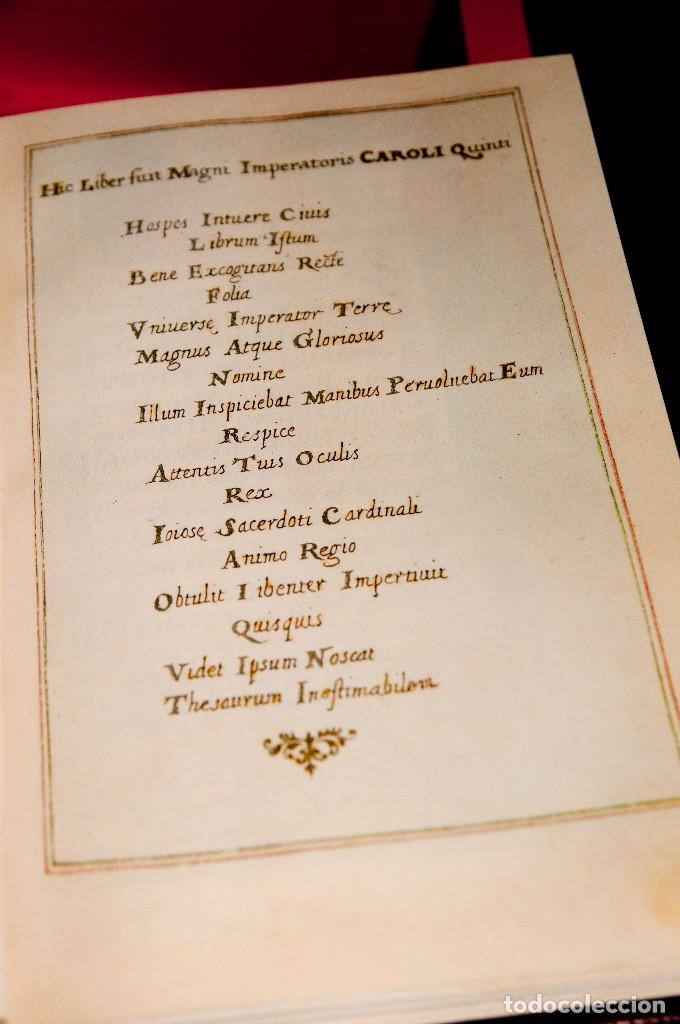 Hic Liber fuit Magni Imperatoris CAROLI Quinti
Hospes Intuere Ciuis
Librum Iſtum
Bene Excogitans Recte
Folia
Vniuersę Imperator Terrę
Magnus Atque Gloriosus
Nomine
Illum Inspiciebat Manibus Peruoluebat Eum
Respice
Attentis Tuis Oculis
Rex
Ioiosę Sacerdoti Cardinali
Animo Regio
Obtulit Libenter Impertiuit
Quisquis
Videt Ipsum Noscat
Thesaurum Ineſtimabilem
todocoleccion